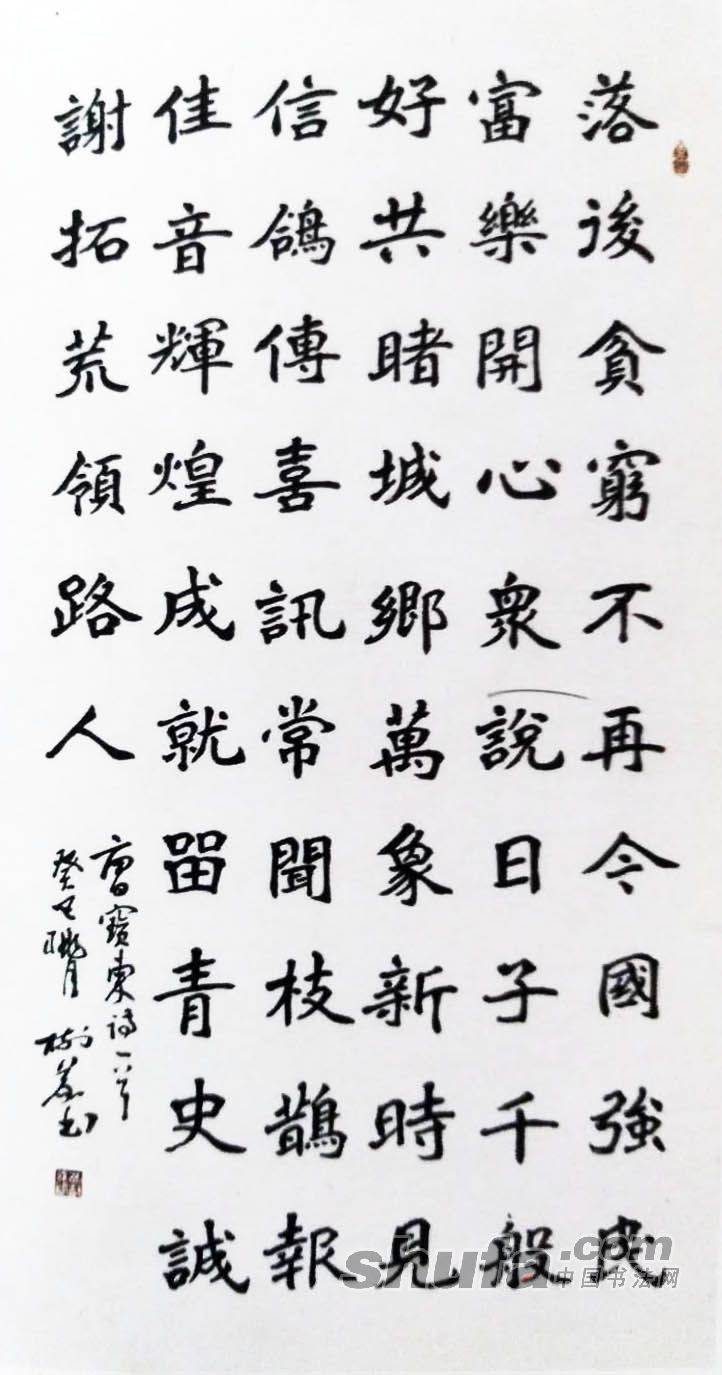 落後貧窮不再今國強民
富樂開心衆說日子千般
好共睹城鄉萬象新時見
信鴿傳喜訊常聞枝鵲報
佳音輝煌成就留青史誠
謝拓荒領路人
曹寶東詩一首
癸巳 樹 書
shufa.com
中国书法网